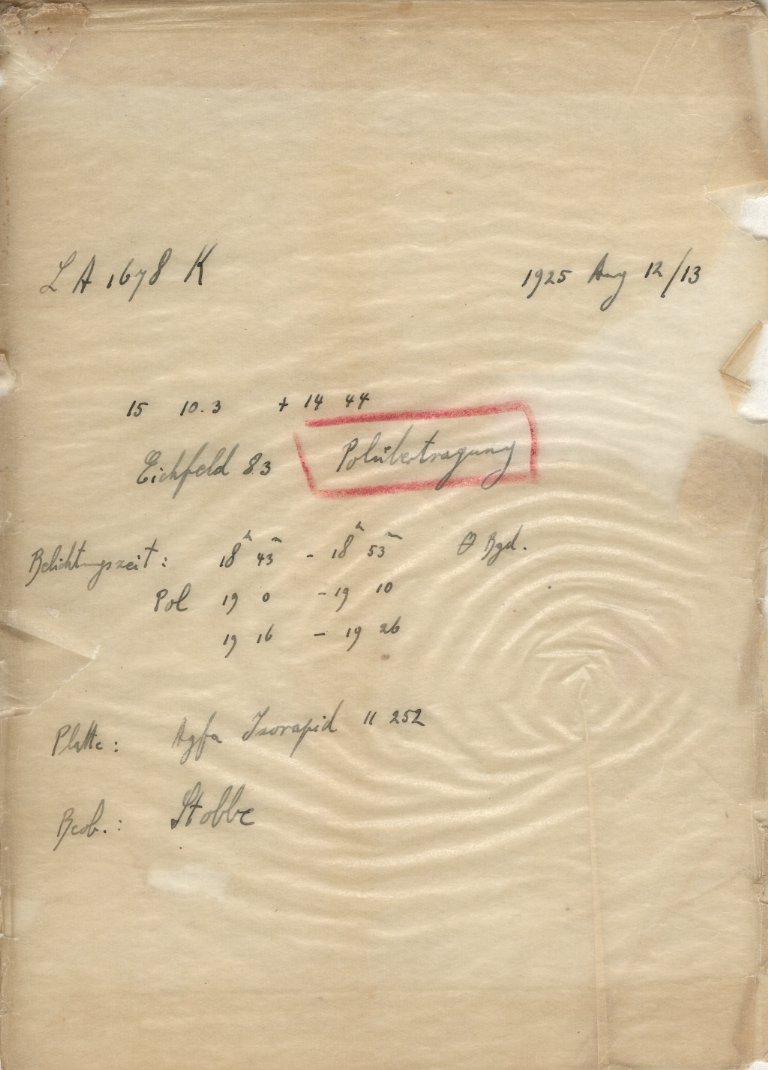 LA 1678 K 1925 Aug 12/13
15 10.3 + 14 44
Eichfeld 83 Polübertragung
Belichtungszeit: 18ʰ 43ᵐ - 18ʰ 53ᵐ Bgd.
Pol 19 0 - 19 10
19 16 - 19 26
Platte: Agfa Isorapid 11 252
Beob.: Stobbe